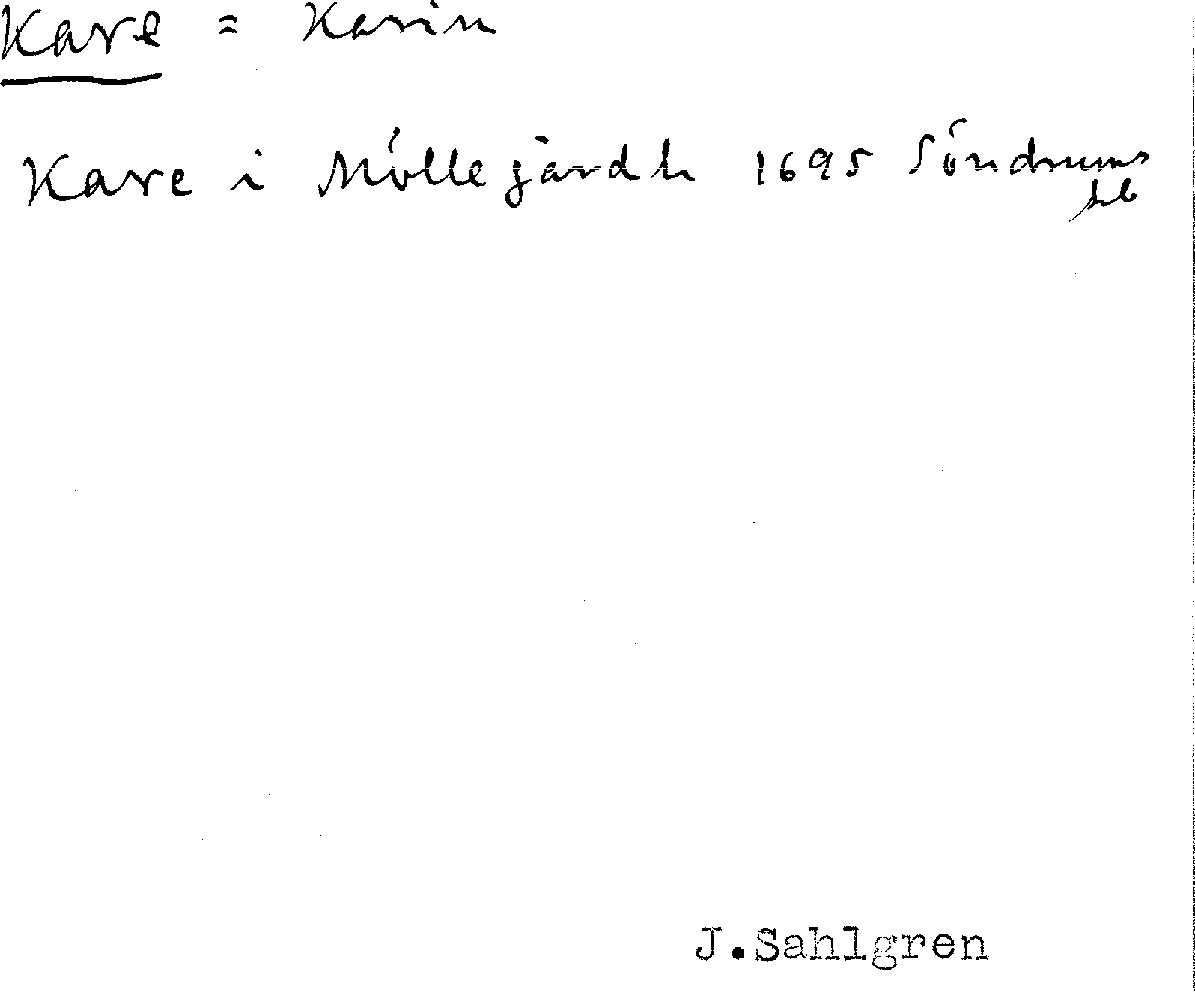 Kare = Karin
Kare i Möllegårdh 1695 Söndrums
slb
J.Sahlgren